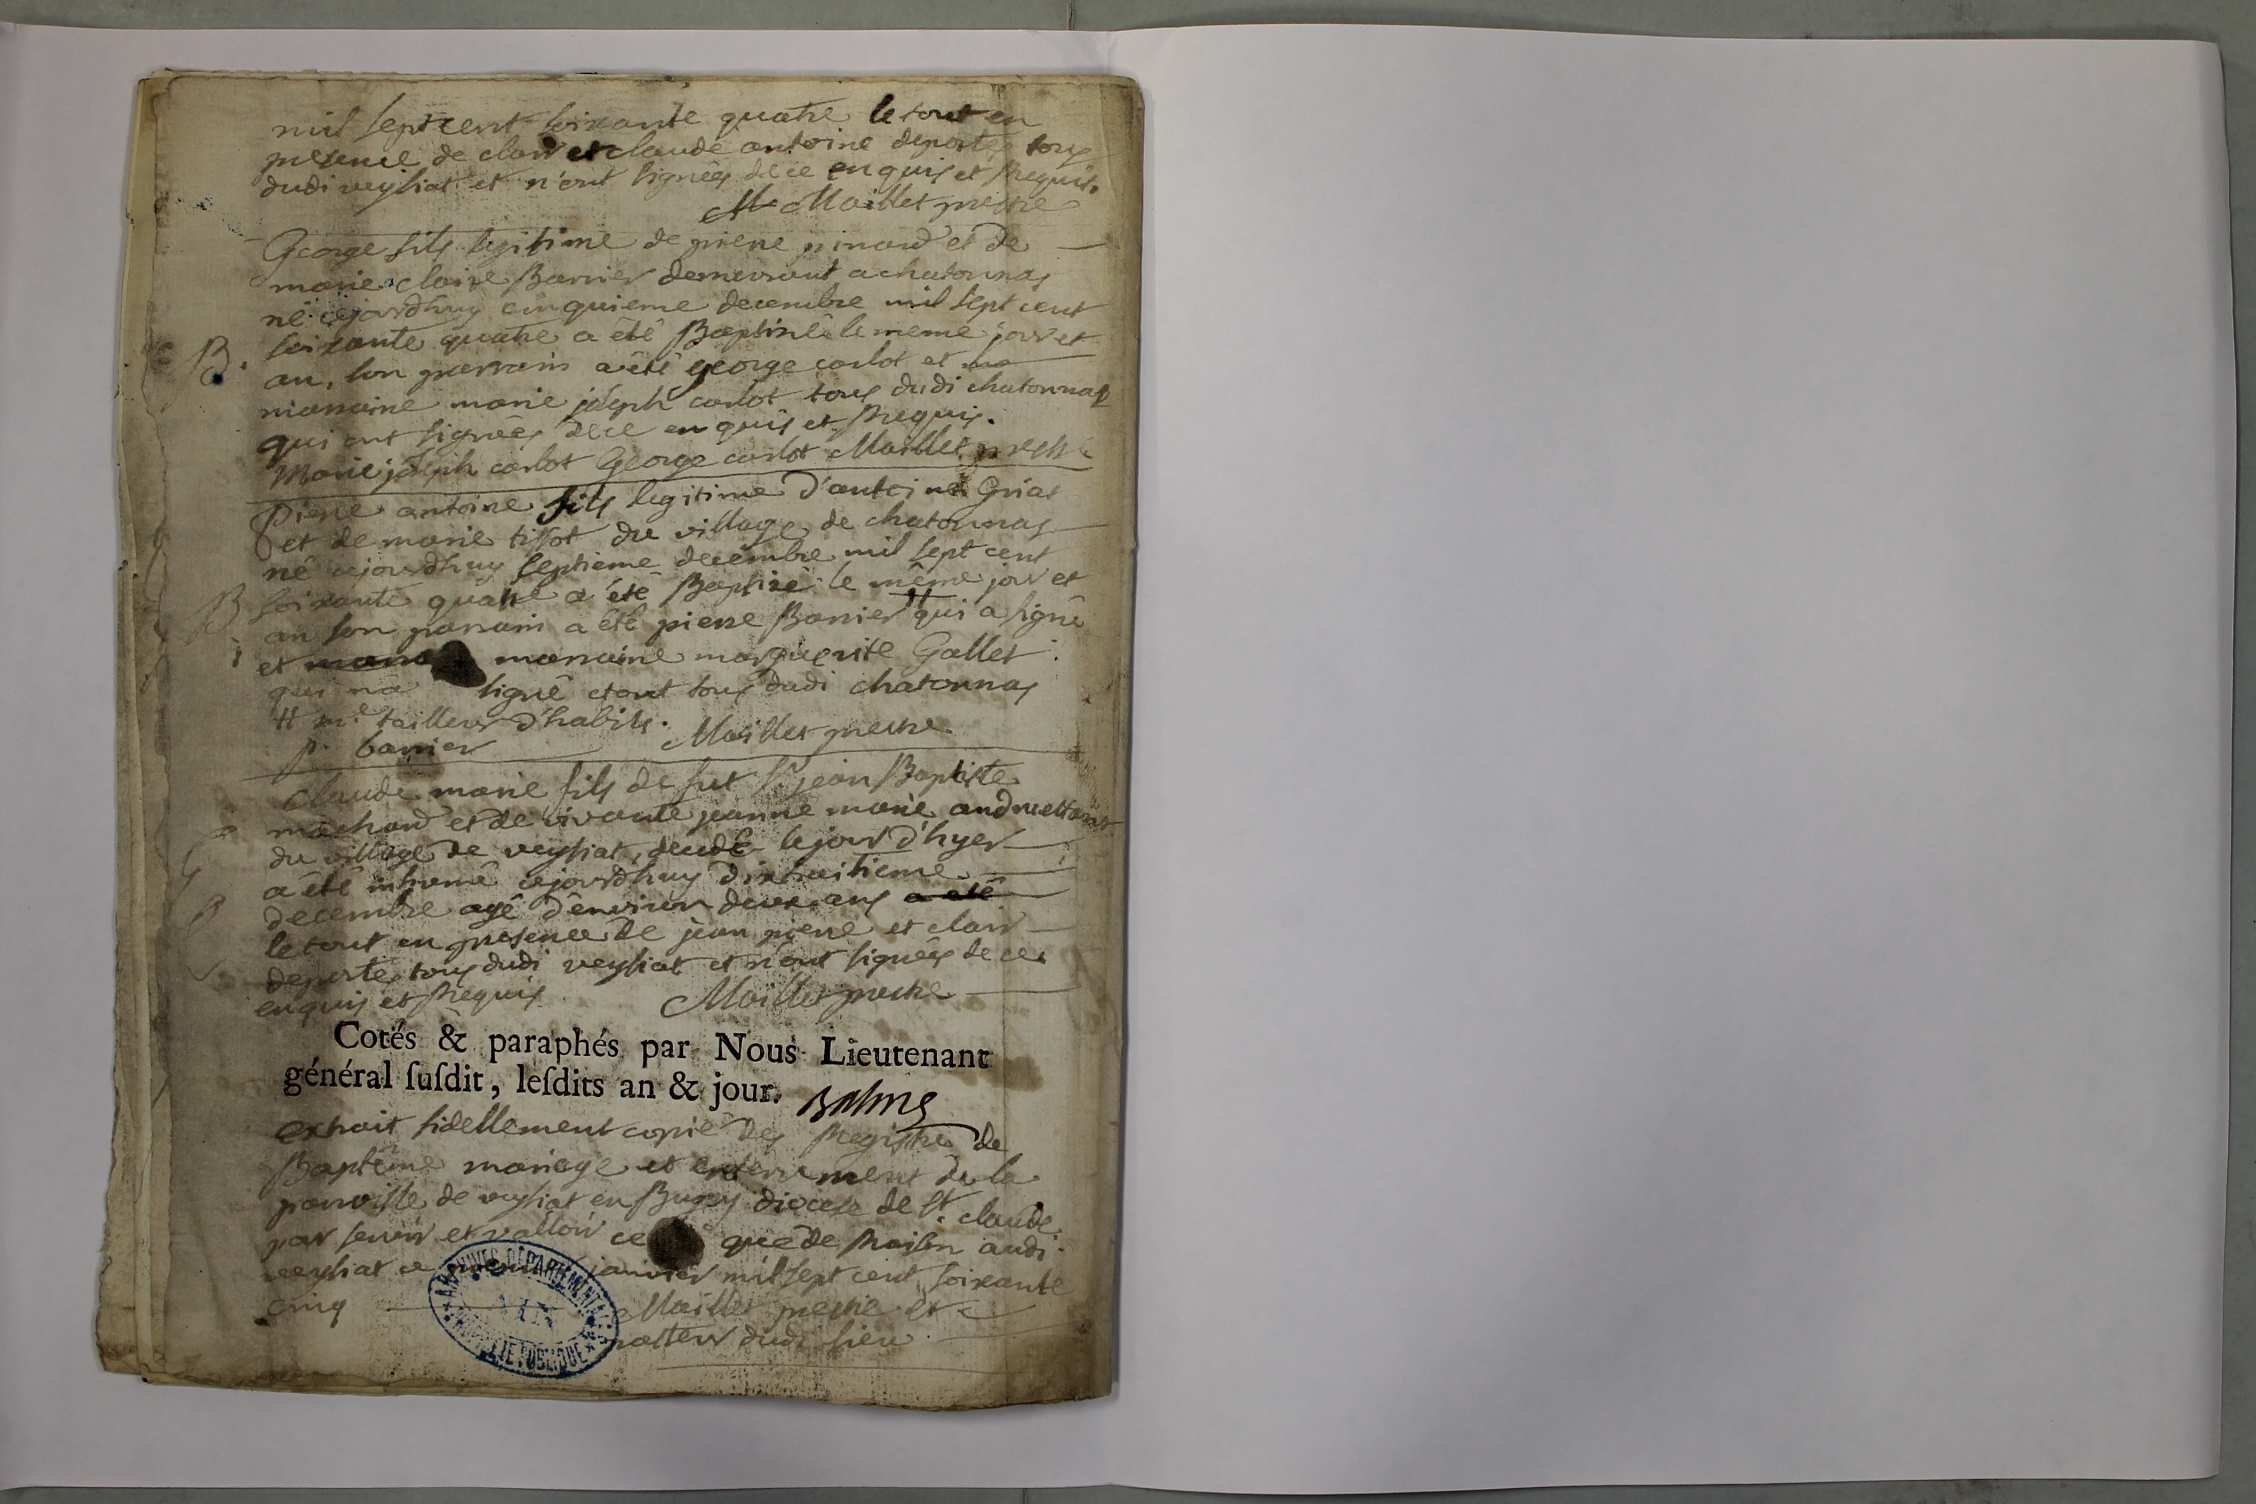 mil sept cent soixante quatre le tout en
presence de clair et claude antoine deporte tous
dudi veysiat et n'ont signées de ce enquis et Requis.
Maillet prestre
George fils legitime de pierre pinard et de
marie claire Barrier demeurant a chatonnas
né cejourdhuy cinquieme decembre mil sept cent
B. soixante quatre a été Baptisé le meme jour et
an, son parrain a été george carlot et sa
marraine marie joseph carlot tous dudi chatonnas
qui ont signées de ce enquis et Requis.
Marie joseph carlot George carlot Maillet prestre
pierre antoine fils legitime d'antoine Griat
et de marie tissot du village de chatonnas
né cejourdhuy septieme decembre mil sept cent
B soixante quatre a été Baptisé le même jour et
an son parrain a été pierre Barrier # qui a signé
et marraine marguerite Gallet
qui n'a signé etant tous dudi chatonnas
# me tailleur d'habits.
p. barrier Maillet prestre
claude marie fils de fut sr jean Baptiste
machard et de vivante jeanne marie
du village de veysiat, decedé le jour d'hyer
a été inhumé cejourdhuy dixhuitieme
decembre agé d'environ deux ans a été
le tout en presence de jean pierre et clair
deporte tous dudi veysiat et n'ont signées de ce
enquis et Requis Maillet prestre
Cotés & paraphés par Nous Lieutenant
général ſuſdit, leſdits an & jour.
extrait fidellement copié des Registre de
Baptême mariage et enterrement de la
parroisse de veysiat en Bugey diocese de St. claude
par servir et valloir ce que de Raison audi
veysiat ce janvier mil sept cent soixante
cinq Maillet prestre et
pasteur dudi lieu
ARCHIVES DÉPARTEMENTALES
AIN